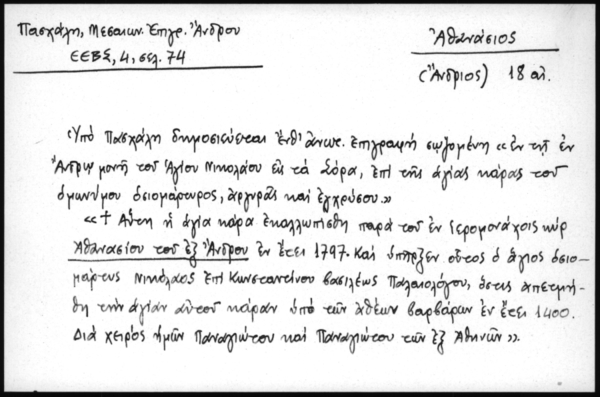 Πασχάλη, Μεσαιων. Ἐπιγρ. Ἄνδρου
ΕΕΒΣ, 4, σελ. 74
Ἀθανάσιος
(Ἄνδριος) 18 αἰ.
Ὑπό Πασχάλη δημοσιεύεται ἔνθ' ἀνωτ. ἐπιγραφή σῳζομένη «ἐν τῇ ἐν
Ἄνδρῳ μονῇ τοῦ Ἁγίου Νικολάου εἰς τά Σόρα, ἐπί τῆς ἁγίας κάρας τοῦ
ὁμωνύμου ὁσιομάρτυρος, ἀργυρᾶς καί ἐγχρύσου.»
«† Αὕτη ἡ ἁγία κάρα ἐκαλλωπίσθη παρά τοῦ ἐν ἱερομονάχοις κύρ
Ἀθανασίου τοῦ ἐξ Ἄνδρου ἐν ἔτει 1797. Καί ὑπῆρξεν οὗτος ὁ ἅγιος ὁσιο-
μάρτυς Νικόλαος ἐπί Κωνσταντίνου βασιλέως Παλαιολόγου, ὅστις ἀπετμή-
θη τήν ἁγίαν αὐτοῦ κάραν ὑπό τῶν ἀθέων βαρβάρων ἐν ἔτει 1400.
Διά χειρός ἡμῶν Παναγιώτου καί Παναγιώτου τῶν ἐξ Ἀθηνῶν».